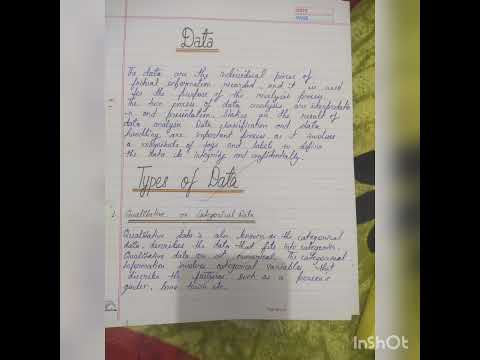 DATE
PAGE
Data
The data are the individual pieces of
factual information recorded and it is used
for the purpose of the analysis process.
The two process of data analysis are interpretatio
n and presentation. Statics are the result of
data analysis. Data classification and data
handling are important process as it involves
a multitude of tags and labels to define
the data its integrity and confidentially.
Types of Data
Qualitative or Categorial Data
Qualitative data is also known as the categorical
data, describes the data that fits into categories.
Qualitative data are not numerical. The categorical
information involves categorical variables that
describe the features such as a person's
gender, home town etc.
InShOt